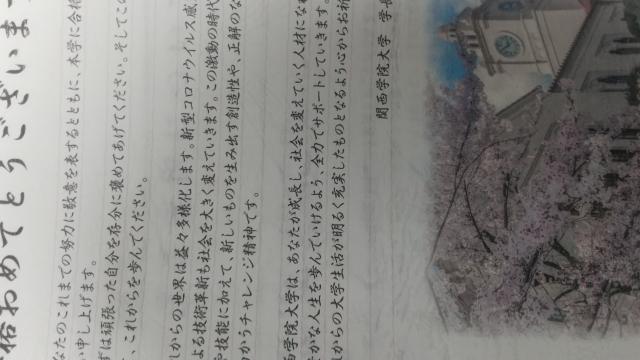 格おめでとうございま
なたのこれまでの努力に敬意を表するとともに、本学に合格
い申し上げます。
ずは頑張った自分を存分に褒めてあげてください。そしてこ
、これからを歩んでください。
れからの世界は益々多様化します。新型コロナウイルス感
よる技術革新も社会を大きく変えていきます。この激動の時代
や技能に加えて、新しいものを生み出す創造性や、正解のな
かうチャレンジ精神です。
西学院大学は、あなたが成長し、社会を変えていく人材にな
かな人生を歩んでいけるよう、全力でサポートしていきます。
からの大学生活が明るく充実したものとなるよう心からお祈
関西学院大学 学長